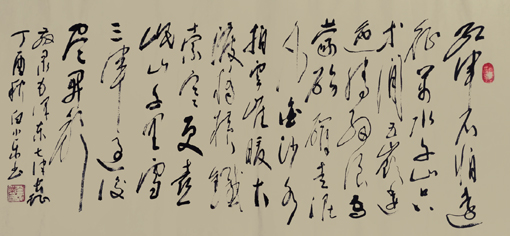 红军不怕远
征难万水千山只
等闲五岭逶
迤腾细浪乌
蒙磅礴走泥
丸金沙水
拍云崖暖大
渡桥横铁
索寒更喜
岷山千里雪
三军过后
尽开颜
毛泽东七律长征
丁酉秋